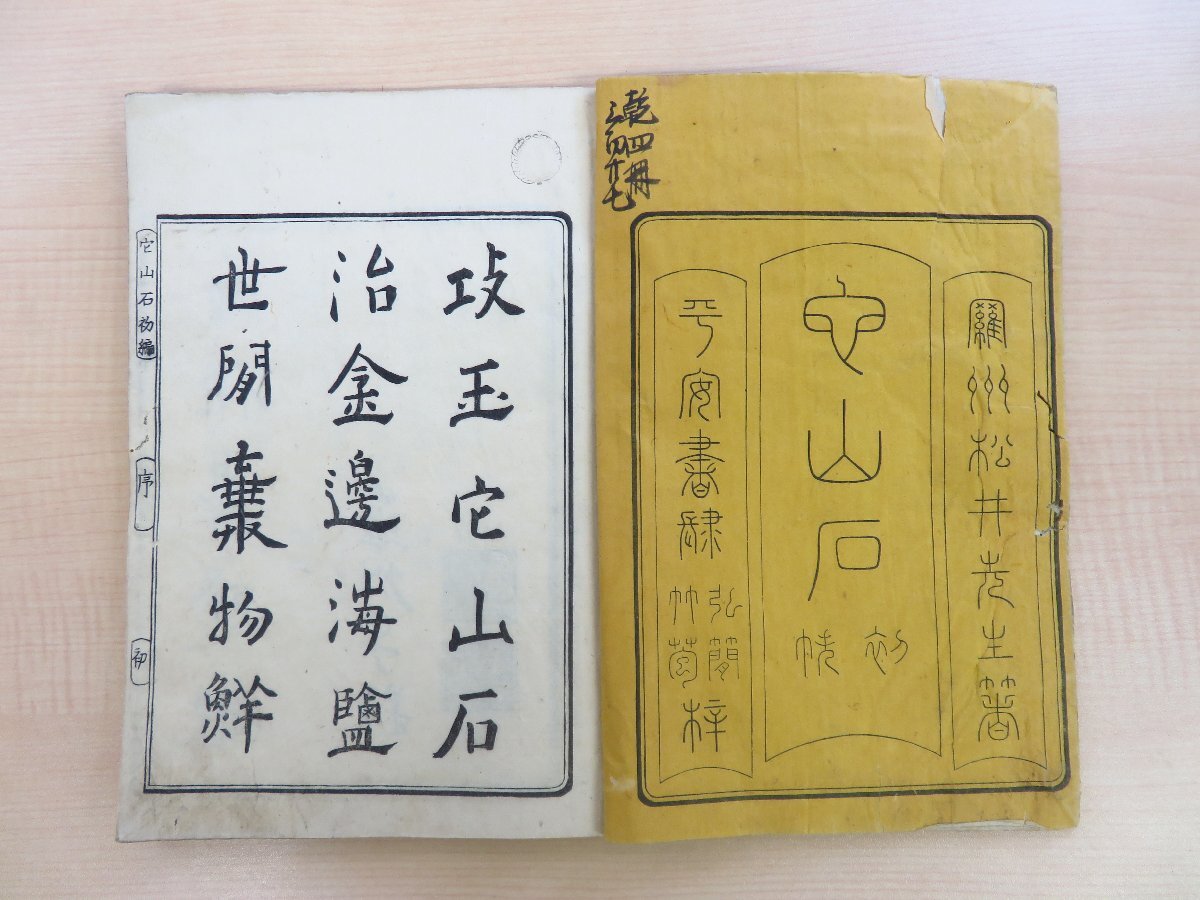 乾四冊
三百廿七
羅州松井先生著
它山石
初帙
平安書肆
弘簡
竹苞
梓
攻玉它山石
治金邊海鹽
世間棄物鮮
它山石初編
序
初